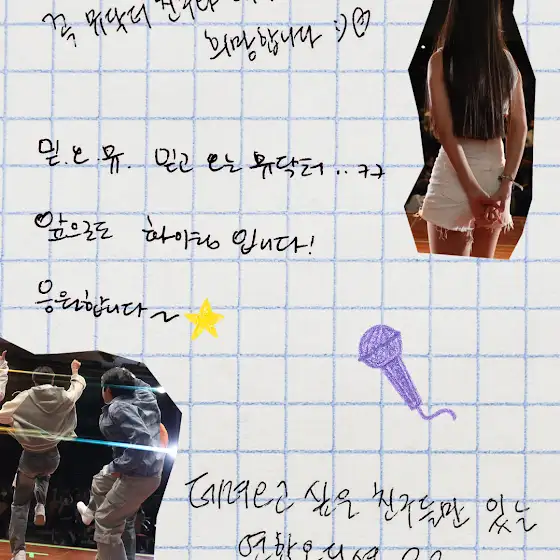 꼭 뮤닥터 친구랑
희망합니다 :)♡
믿.오.뮤. 믿고 오는 뮤닥터..ㅋㅋ
앞으로도 화이팅 입니다!
응원합니다~
데려오고 싶은 친구들만 있는